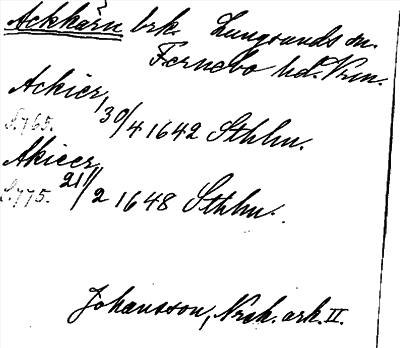 Ackkärn brk. Lungsunds sn.
Fernebo hd. Vrm.
Ackier,
S.765. 30/4 1642 Sthlm.
Akieer,
S.775. 21/2 1648 Sthlm.
Johansson, Nrck. ark. II.